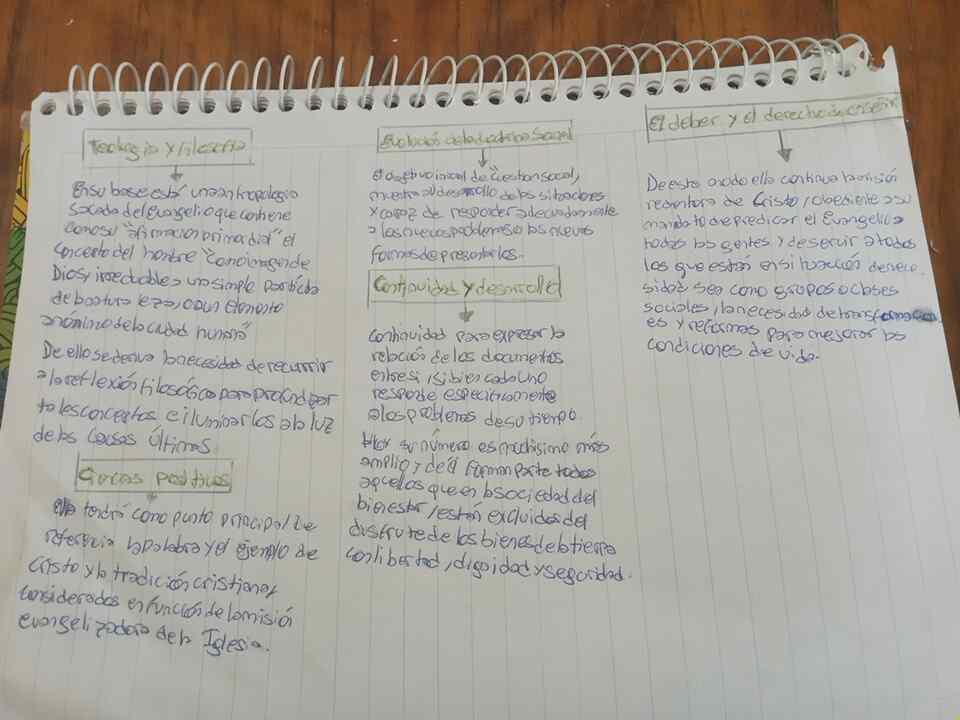 Teología y filosofía
En su base está una antropología
sacada del evangelio que contiene
como su "afirmación primordial" el
concepto del hombre "como imagen de
Dios, irreductible a una simple partícula
de la naturaleza, o a un elemento
anónimo de la ciudad humana"
De ello se deriva la necesidad de recurrir
a la reflexión filosófica para profundizar
tales conceptos e iluminarlos a la luz
de las causas últimas.
Ciencias positivas
Ella tendrá como punto principal de
referencia la palabra y el ejemplo de
Cristo y la tradición cristiana,
considerados en función de la misión
evangelizadora de la Iglesia.
Evolución de la doctrina Social
El objetivo inicial de "Cuestion social,
muestra al desarrollo de las situaciones
y capaz de responder adecuadamente
a los nuevos problemas o las nuevas
formas de presentarlos.
Continuidad y desarrollo
Continuidad para expresar la
relación de los documentos
entre si, si bien cada uno
responde especificamente
a los problemas de su tiempo.
Hoy su número es muchísimo más
amplio y de él forman parte todos
aquellos que en la sociedad del
bienestar, están excluidos del
disfrute de los bienes de la tierra
con libertad, dignidad y seguridad.
El deber y el derecho de enseñar
De este modo ella continua la misión
redentora de Cristo, obediente a su
mandato de predicar el Evangelio a
todas las gentes y de servir a todos
los que están en situación de nece-
sidad sea como grupos o clases
sociales, la necesidad de transformacion
es y reformas para mejorar las
condiciones de vida.